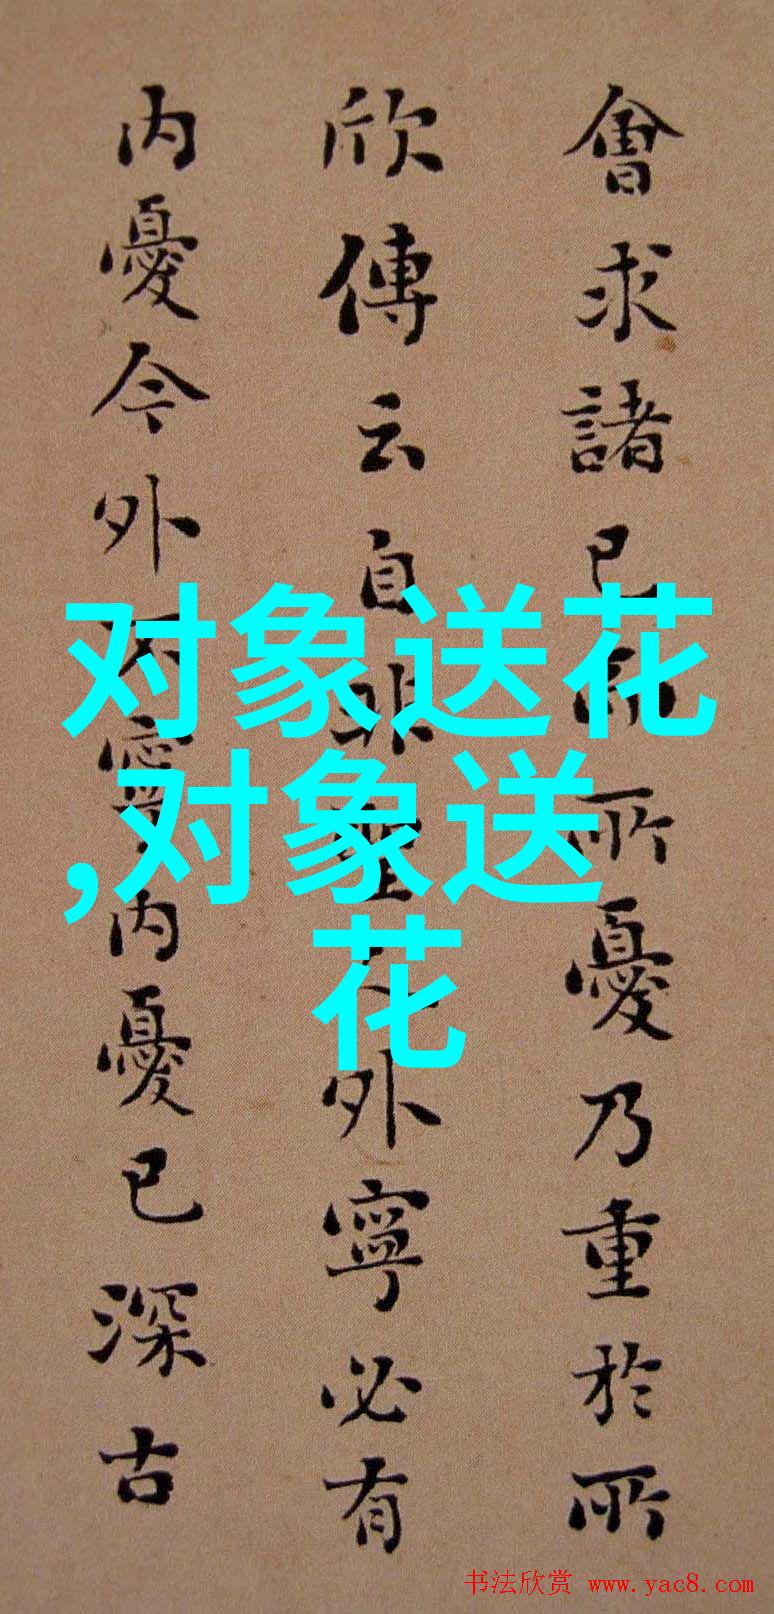 會求諸己而所憂乃重於所
欣傳云自非聖人外寧必有
内憂今外不寧内憂已深古
对象送花
,对象送
花
书法欣赏 www.yac8.com